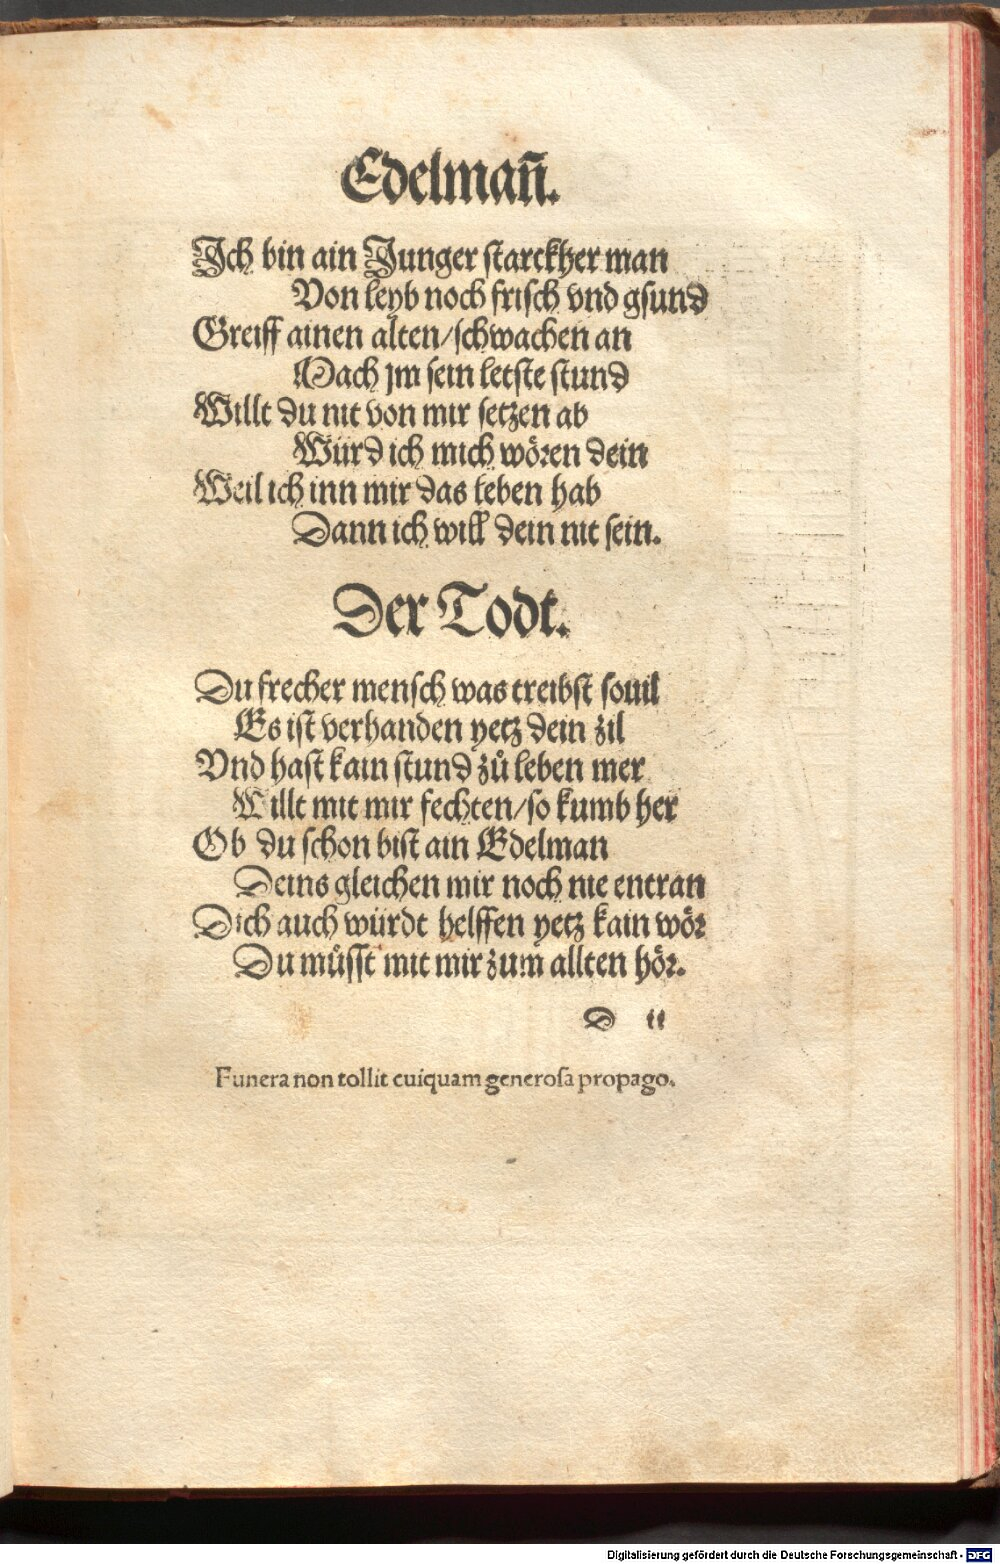 Edelman̄.
Ich bin ain Junger starckher man
Von leyb noch frisch vnd gsund
Greiff ainen alten/schwachen an
Mach jm sein letste stund
Willt du nit von mir setzen ab
Würd ich mich wören dein
Weil ich inn mir das leben hab
Dann ich will dein nit sein.
Der Todt.
Du frecher mensch was treibst souil
Es ist verhanden yetz dein zil
Vnd hast kain stund zů leben mer
Willt mit mir fechten/so kumb her
Ob du schon bist ain Edelman
Deins gleichen mir noch nie entran
Dich auch würdt helffen yetz kain wör
Du müsst mit mir zum allten hör.
D ii
Funera non tollit cuiquam generosa propago.
Digitalisierung gefördert durch die Deutsche Forschungsgemeinschaft - DFG